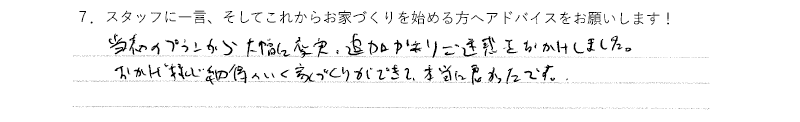 7．スタッフに一言、そしてこれからお家づくりを始める方へアドバイスをお願いします！
当初のプランから大幅に変更、追加がありご迷惑をおかけしました。
おかげ様で納得のいく家づくりができて、本当に良かったです。